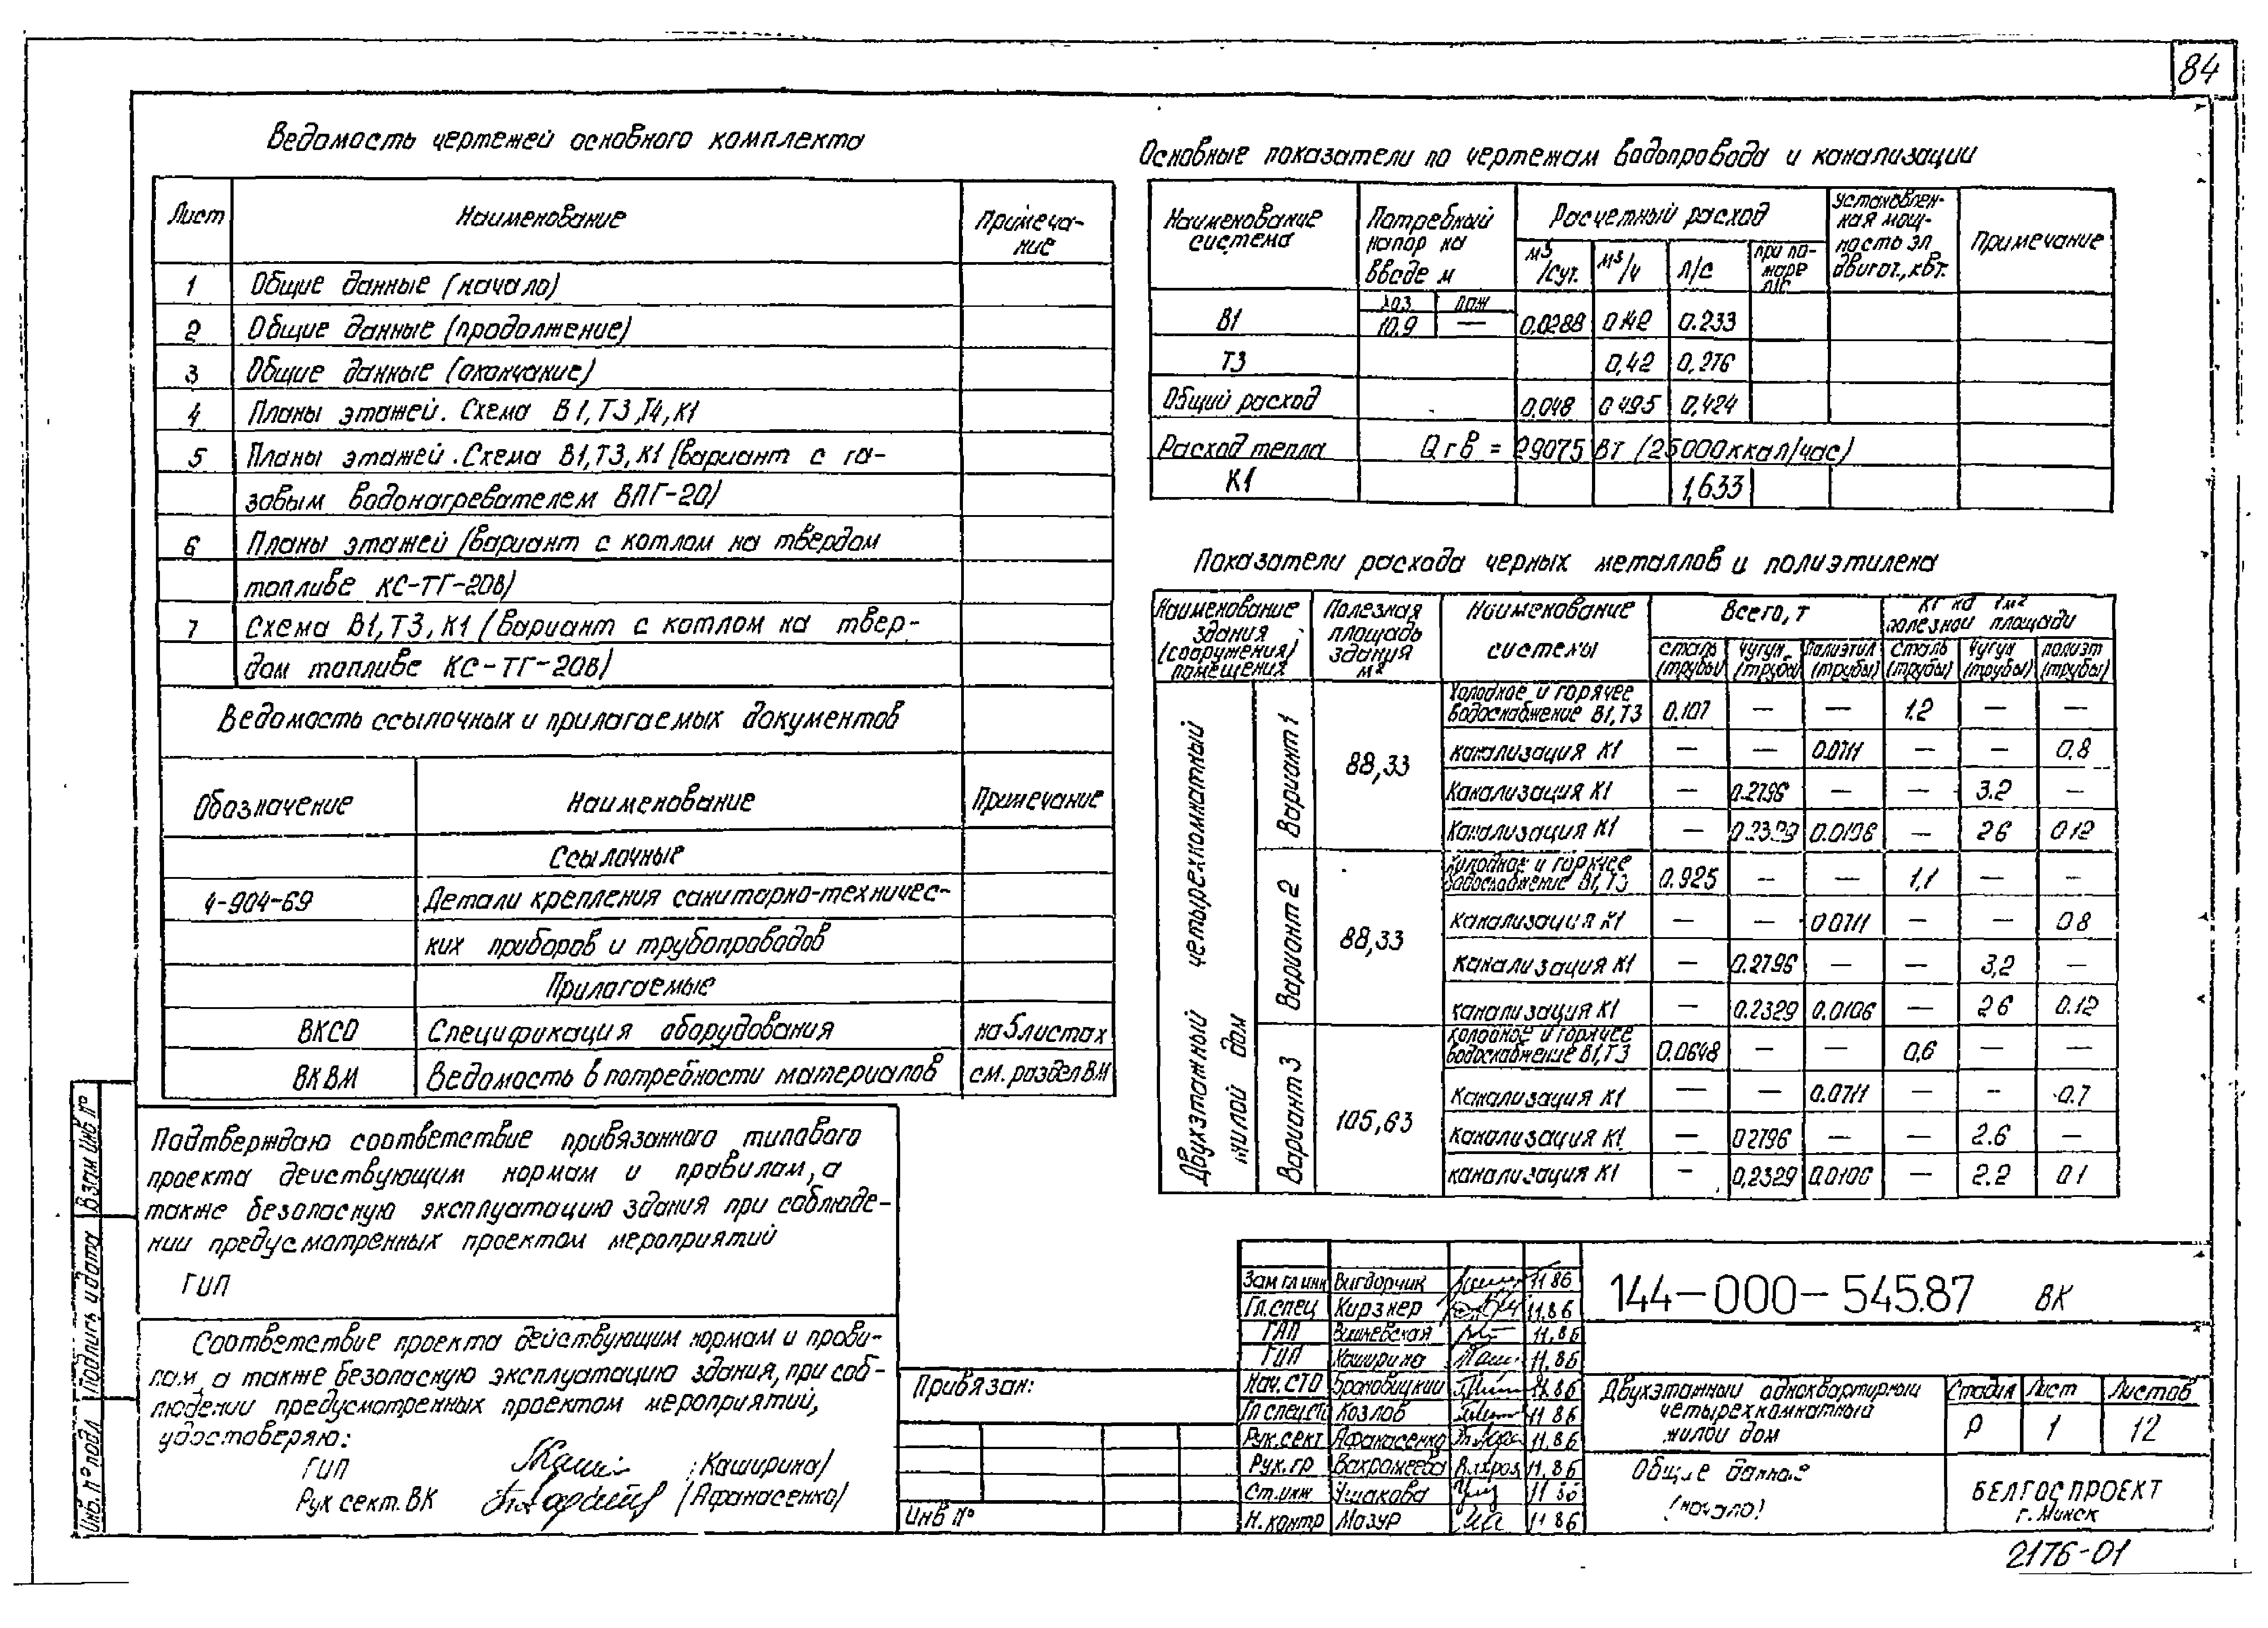 84
Ведомость чертежей основного комплекта
Лист Наименование Примеча-
ние
1 Общие данные (начало)
2 Общие данные (продолжение)
3 Общие данные (окончание)
4 Планы этажей. Схема В1, Т3, Т4, К1
5 Планы этажей. Схема В1, Т3, К1 (вариант с га-
зовым водонагревателем ВПГ-20)
6 Планы этажей (вариант с котлом на твердом
топливе КС-ТГ-20В)
7 Схема В1, Т3, К1 (вариант с котлом на твер-
дом топливе КС-ТГ-20В)
Ведомость ссылочных и прилагаемых документов
Обозначение Наименование Примечание
Ссылочные
4-904-69 Детали крепления санитарно-техничес-
ких приборов и трубопроводов
Прилагаемые
ВКСО Спецификация оборудования на 5 листах
ВК ВМ Ведомость в потребности материалов см. раздел ВМ
Подтверждаю соответствие привязанного типового
проекта действующим нормам и правилам, а
также безопасную эксплуатацию здания при соблюде-
нии предусмотренных проектом мероприятий
ГИП
Соответствие проекта действующим нормам и прави-
лам, а также безопасную эксплуатацию здания, при соб-
людении предусмотренных проектом мероприятий,
удостоверяю:
ГИП (Каширина)
Рук сект. ВК (Афанасенко)
Взам инв №
Подпись и дата
Инв. № подл
Основные показатели по чертежам водопровода и канализации
Наименование
система
Потребный
напор на
вводе м
Расчетный расход
м³
/сут. м³/ч л/с при по-
жаре
л/с
Установлен-
ная мощ-
ность эл
двигат., кВт.
Примечание
хоз пож
В1 10.9 — 0.0288 0.142 0.233
Т3 0,42 0,276
Общий расход 0,048 0 495 0,424
Расход тепла Qгв = 29075 Вт (25000 ккал/час)
К1 1,633
Показатели расхода черных металлов и полиэтилена
Наименование
здания
(сооружения)
помещения
Полезная
площадь
здания
м²
Наименование
системы
Всего, т
кг на 1м²
полезной площади
сталь
(трубы) чугун
(трубы) полиэтил
(трубы) сталь
(трубы) чугун
(трубы) полиэт
(трубы)
Двухэтажный четырехкомнатный
жилой дом
Вариант 1 88,33
Холодное и горячее
водоснабжение В1, Т3 0.107 — — 1.2 — —
канализация К1 — — 0.0711 — — 0,8
Канализация К1 — 0.2796 — — 3.2 —
Канализация К1 — 0.2329 0.0106 — 2 6 0 12
Вариант 2 88,33
Холодное и горячее
водоснабжение В1, Т3 0.925 — — 1,1 — —
Канализация К1 — — 0.0711 — — 0 8
канализация К1 — 0.2796 — — 3,2 —
канализация К1 — 0.2329 0.0106 — 2 6 0.12
Вариант 3 105,63
холодное и горячее
водоснабжение В1, Т3 0.0648 — — 0,6 — —
Канализация К1 — — 0.0711 — — 0.7
канализация К1 — 0 2796 — — 2.6 —
канализация К1 — 0,2329 0.0106 — 2.2 0 1
Привязан:
Инв №
Зам гл инж Вигдорчик 11 86
Гл. спец Кирзнер 11.86
ГАП Вишневская 11.86
ГИП Каширина 11.86
Нач. СТО Брановицкий 11.86
Гл спец СТО Козлов 11 86
Рук. сект Афанасенко 11.86
Рук. гр Вахрамеева 11.86
Ст. инж Ушакова 11 86
Н. контр Мазур 11 86
144-000-545.87 ВК
Двухэтажный одноквартирный
четырехкомнатный
жилой дом
Стадия Лист Листов
Р 1 12
Общие данные
(начало)
БЕЛГОСПРОЕКТ
г. Минск
2176-01